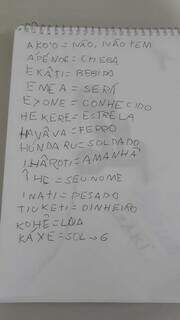 AKO'O = NÃO, NÃO TEM
APÊNOE = CHEGA
EKÂTI = BEBIDO
EMEA = SERÁ
EXONE = CONHECIDO
HEKERE = ESTRELA
HAVÂVA = FERRO
HÚNDARU = SOLDADO
IHÂROTI = AMANHÃ
ÎHE = SEU NOME
INATI = PESADO
TIUKETI = DINHEIRO
KOHÊ = LUA
KAXE = SOL → 6